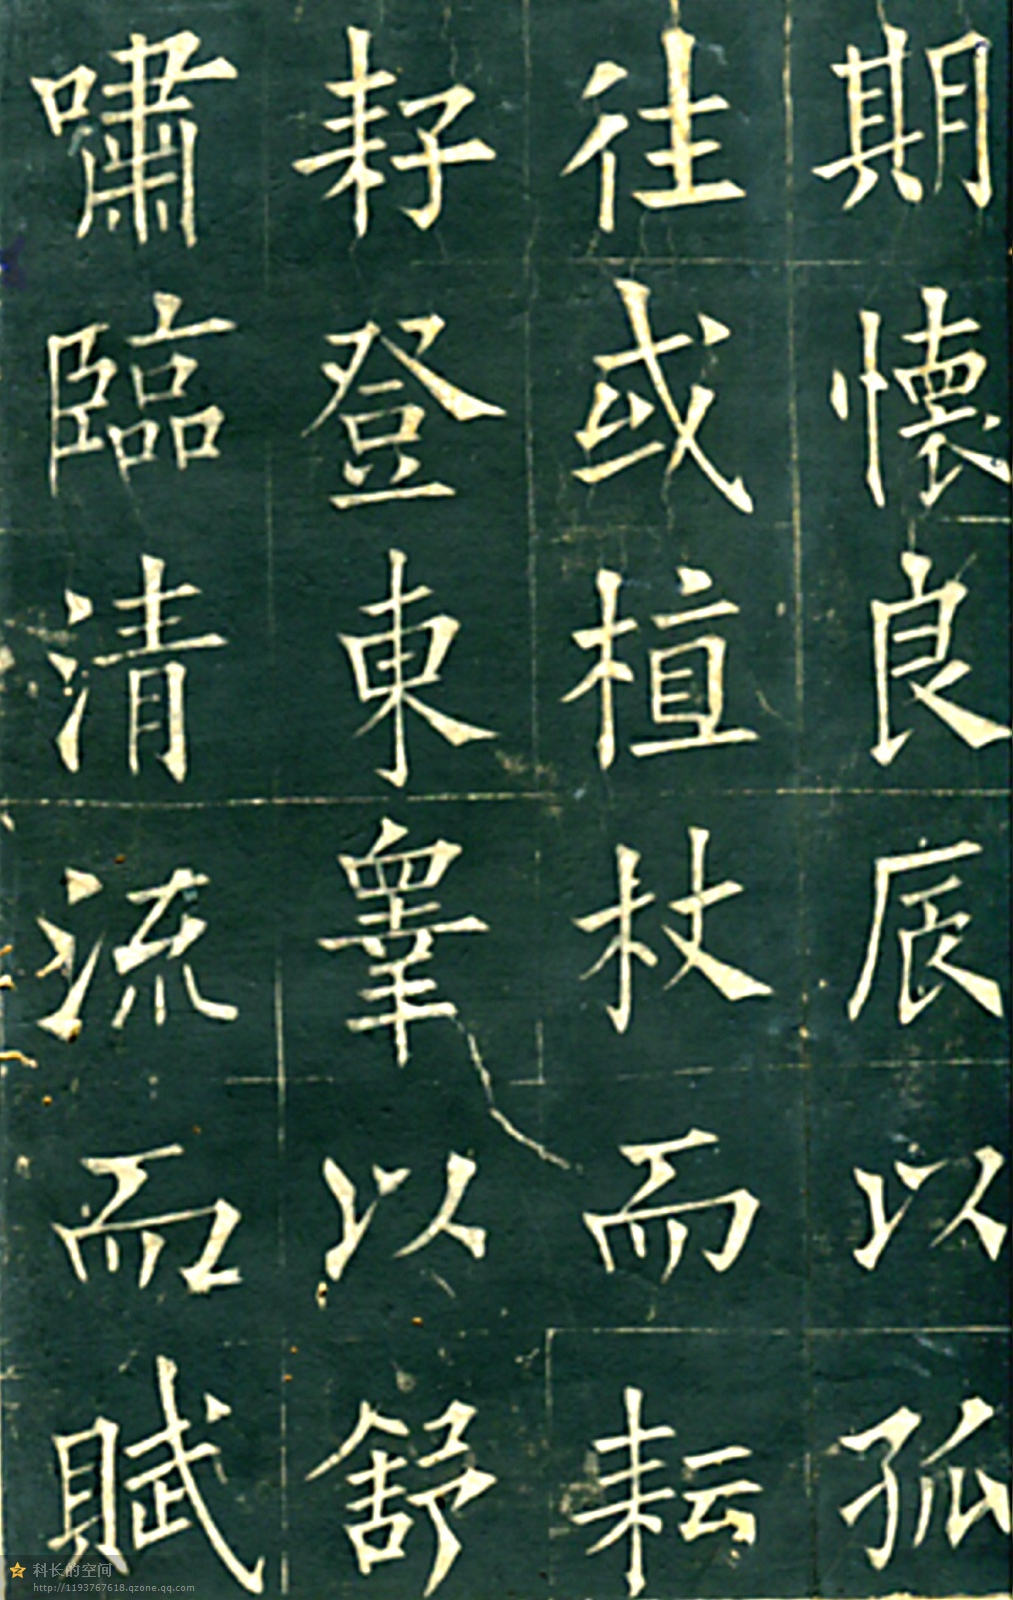 期懷良辰以孤
往或植杖而耘
耔登東睾以舒
嘯臨清流而賦
科长的空间
http://1193767618.qzone.qq.com